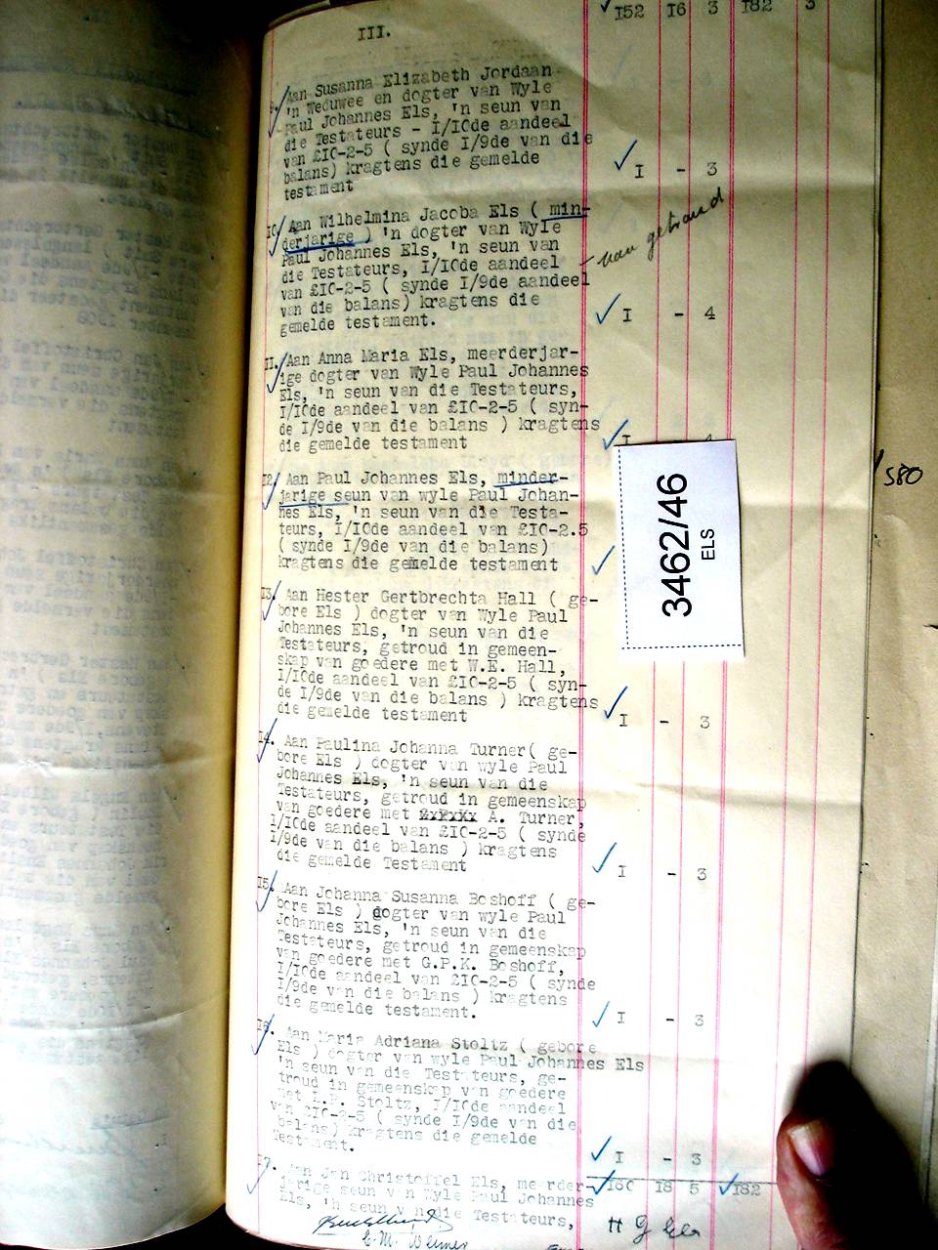 III.
152 16 3 182 3
9. Aan Susanna Elizabeth Jordaan
'n Weduwee en dogter van Wyle
Paul Johannes Els, 'n seun van
die Testateurs - I/IOde aandeel
van £IO-2-5 ( synde I/9de van die
balans) kragtens die gemelde
testament
I - 3
IO. Aan Wilhelmina Jacoba Els ( min-
derjarige ) 'n dogter van Wyle
Paul Johannes Els, 'n seun van
die Testateurs, I/IOde aandeel
van £IO-2-5 ( synde I/9de aandeel
van die balans) kragtens die
gemelde testament.
I - 4
II. Aan Anna Maria Els, meerderjar-
ige dogter van Wyle Paul Johannes
Els, 'n seun van die Testateurs,
I/IOde aandeel van £IO-2-5 ( syn-
de I/9de van die balans ) kragtens
die gemelde testament
I
I2. Aan Paul Johannes Els, minder-
jarige seun van wyle Paul Johan-
nes Els, 'n seun van die Testa-
teurs, I/IOde aandeel van £IO-2.5
( synde I/9de van die balans)
kragtens die gemelde testament
I3. Aan Hester Gertbrechta Hall ( ge-
bore Els ) dogter van Wyle Paul
Johannes Els, 'n seun van die
Testateurs, getroud in gemeen-
skap van goedere met W.E. Hall,
I/IOde aandeel van £IO-2-5 ( syn-
de I/9de van die balans ) kragtens
die gemelde testament
I - 3
I4. Aan Paulina Johanna Turner( ge-
bore Els ) dogter van wyle Paul
Johannes Els, 'n seun van die
Testateurs, getroud in gemeenskap
van goedere met A. Turner,
I/IOde aandeel van £IO-2-5 ( synde
I/9de van die balans ) kragtens
die gemelde Testament
I - 3
I5. Aan Johanna Susanna Boshoff ( ge-
bore Els ) dogter van wyle Paul
Johannes Els, 'n seun van die
Testateurs, getroud in gemeenskap
van goedere met G.P.K. Boshoff,
I/IOde aandeel van £IO-2-5 ( synde
I/9de van die balans ) kragtens
die gemelde testament.
I - 3
I6. Aan Maria Adriana Stoltz ( gebore
Els ) dogter van wyle Paul Johannes Els
'n seun van die Testateurs, ge-
troud in gemeenskap van goedere
met Stoltz, I/IOde aandeel
van £IO-2-5 ( synde I/9de van die
balans) kragtens die gemelde
Testament.
I - 3
I60 I8 5 I82
I7. Aan Jan Christoffel Els, meerder-
jarige seun van Wyle Paul Johannes
Els, 'n seun van die Testateurs,
H G Els
3462/46
ELS
580